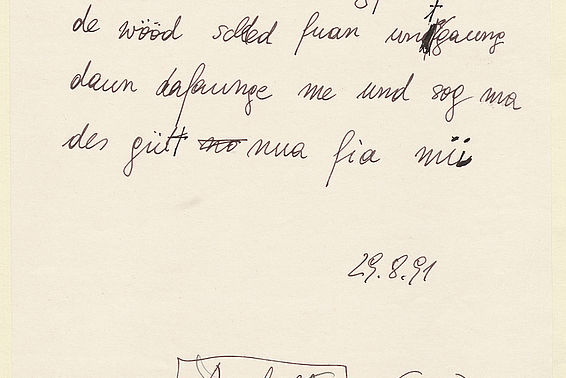 de wööd solled fuan untgaung
daun dafaunge me und sog ma
des güt no nua fia mii
29.8.91